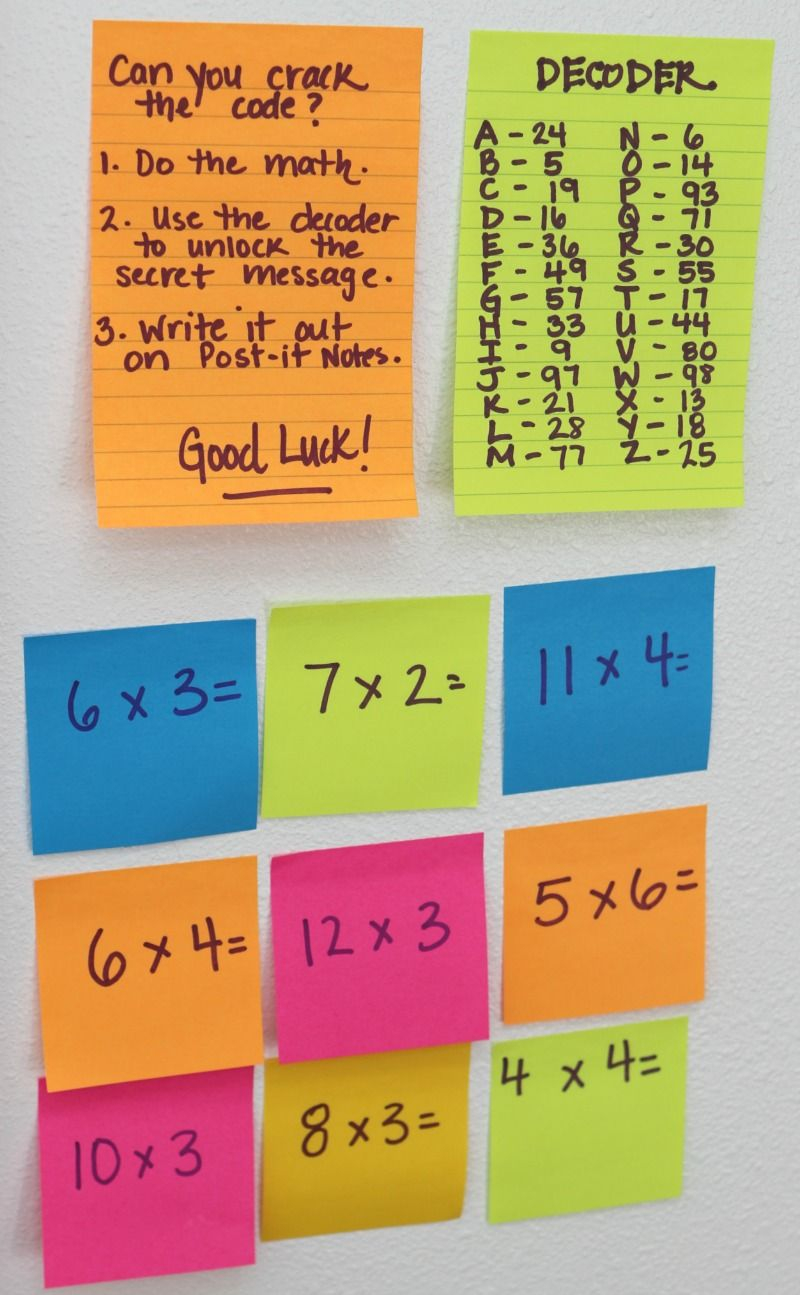 Can you crack
the code?
1. Do the math.
2. Use the decoder
to unlock the
secret message.
3. Write it out
on Post-it Notes.
Good Luck!
DECODER
A - 24
B - 5
C - 19
D - 16
E - 36
F - 49
G - 57
H - 33
I - 9
J - 97
K - 21
L - 28
M - 77
N - 6
O - 14
P - 93
Q - 71
R - 30
S - 55
T - 17
U - 44
V - 80
W - 98
X - 13
Y - 18
Z - 25
6 x 3=
7 x 2=
11 x 4=
6 x 4=
12 x 3
5 x 6=
10 x 3
8 x 3=
4 x 4=